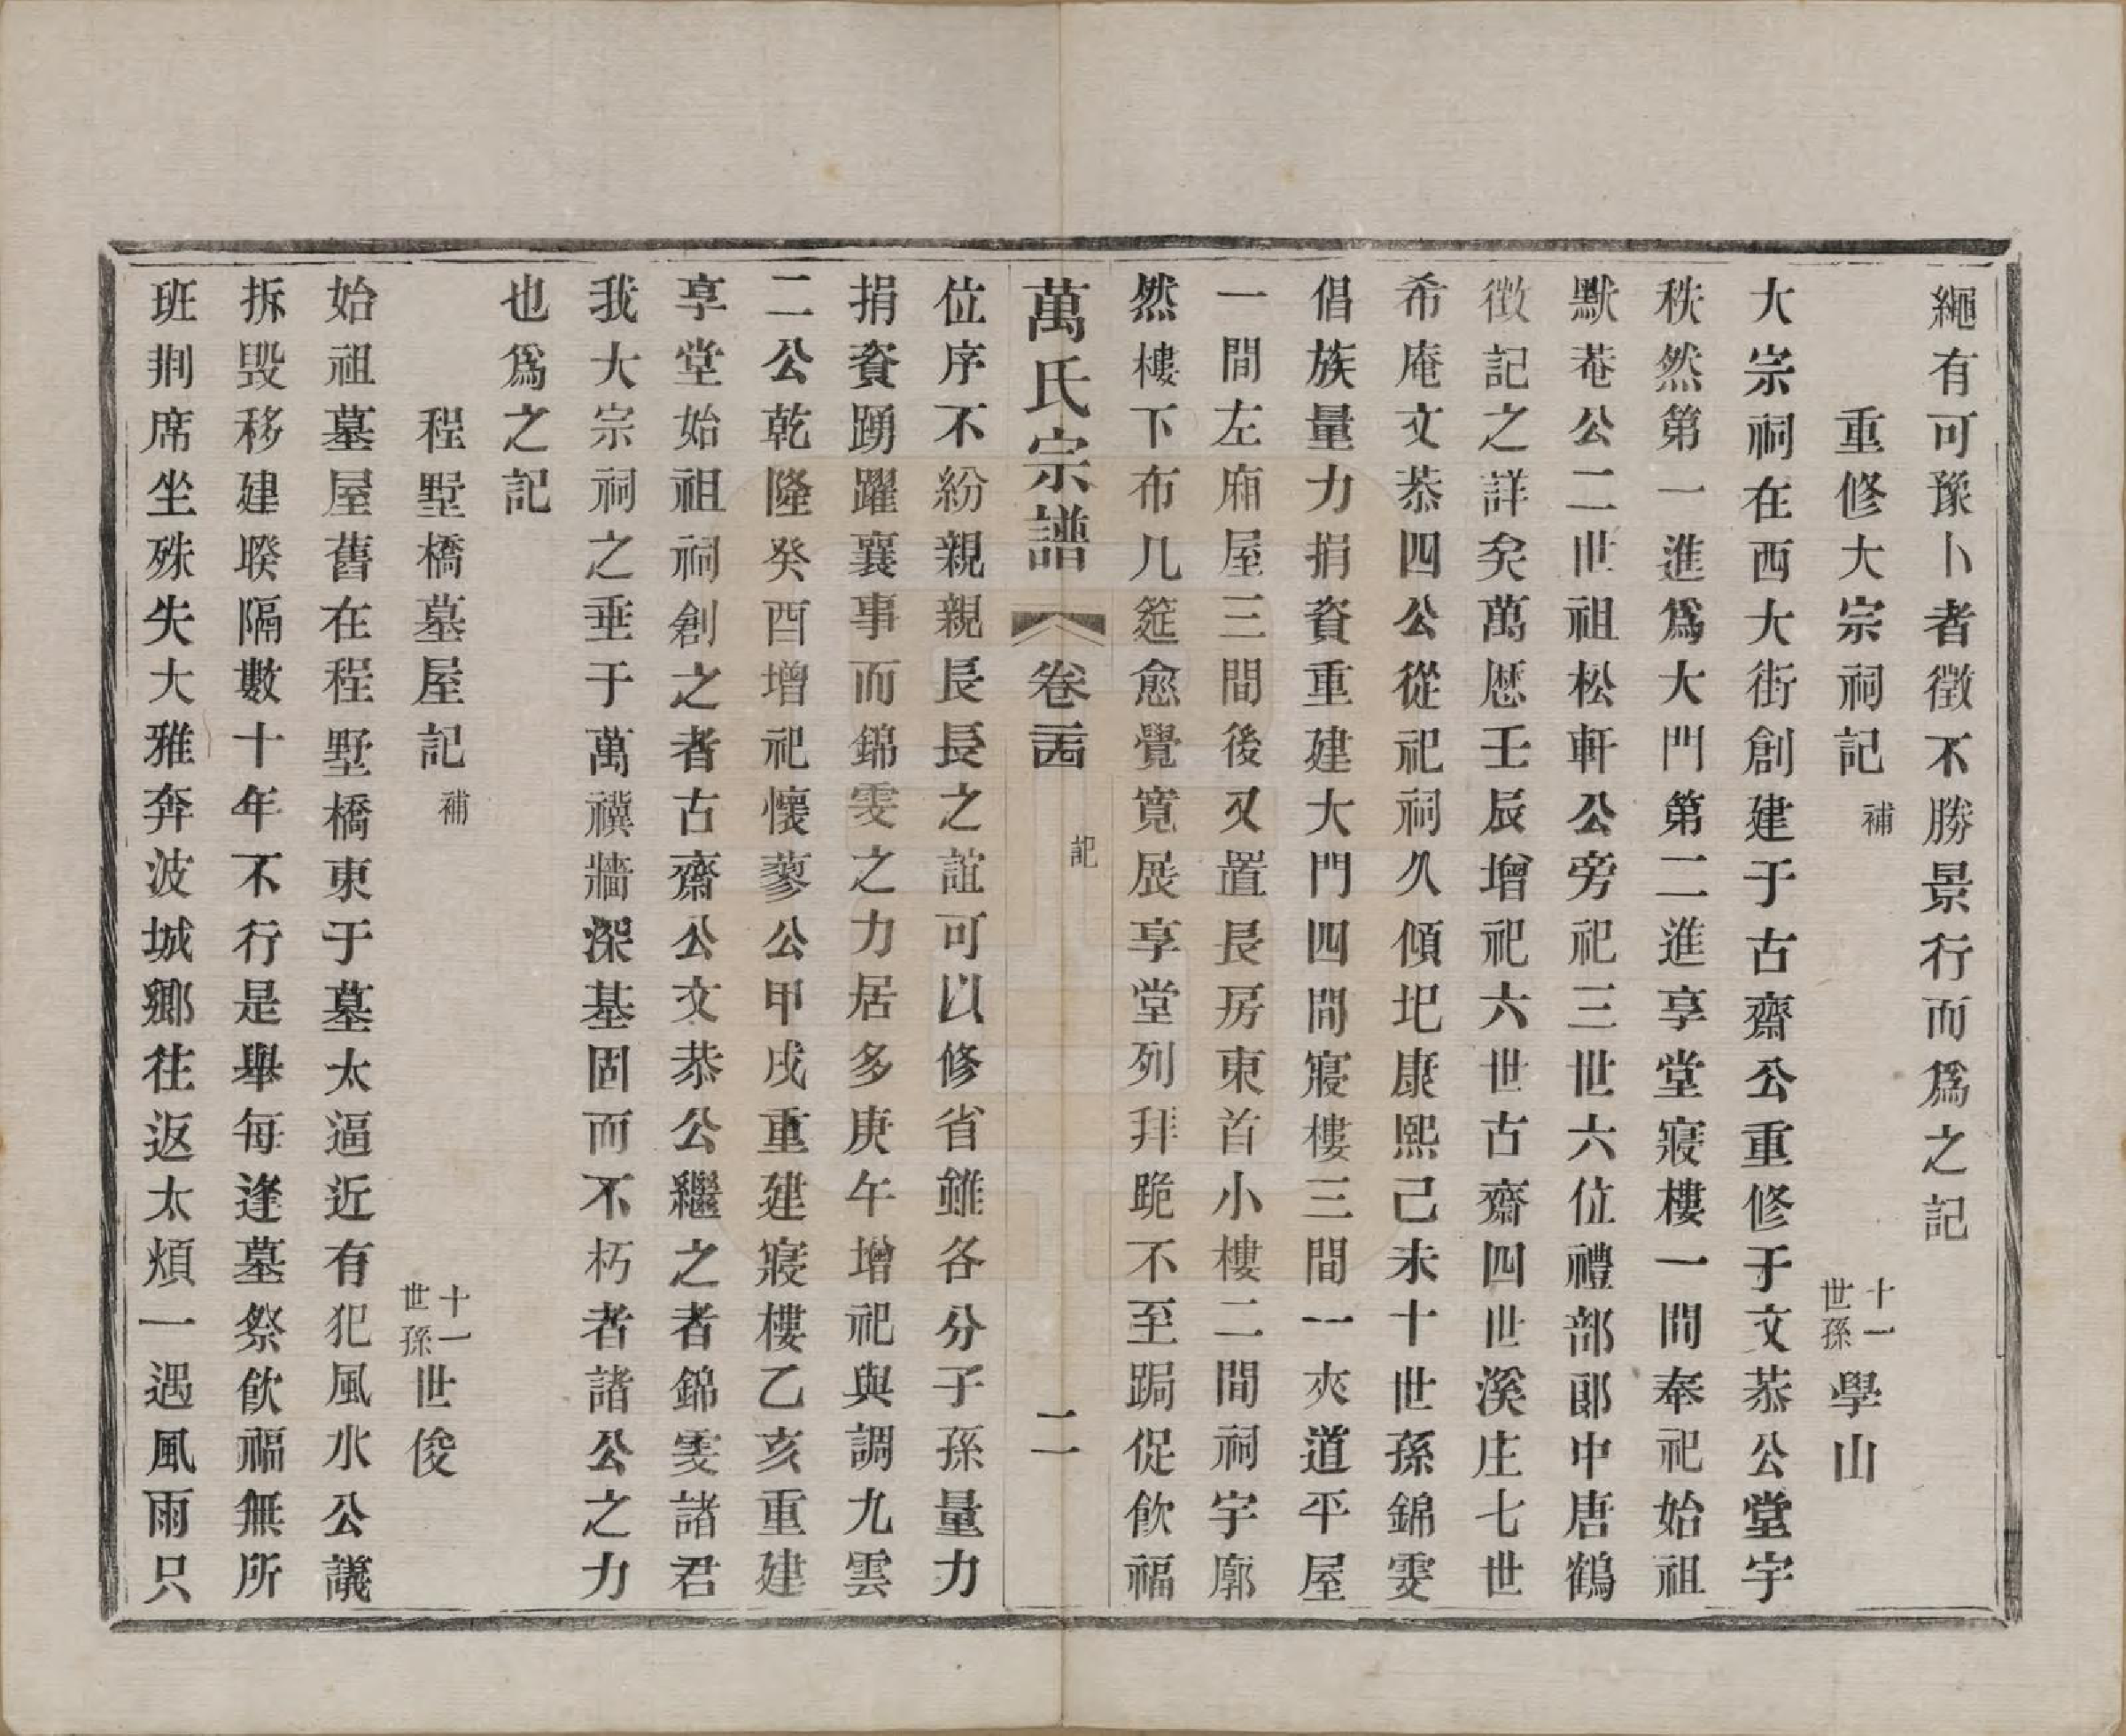 繩有可豫卜者徵不勝景行而爲之記
重修大宗祠記 補 十一世孫 學山
大宗祠在西大街創建于古齋公重修于文恭公堂宇
秩然第一進爲大門第二進享堂寢樓一間奉祀始祖
默菴公二世祖松軒公旁祀三世六位禮部郎中唐鶴
徵記之詳矣萬歷壬辰增祀六世古齋四世溪庄七世
希庵文恭四公從祀祠久傾圮康熙己未十世孫錦雯
倡族量力捐資重建大門四間寢樓三間一夾道平屋
一間左廂屋三間後又置長房東首小樓二間祠宇廓
然樓下布几筵愈覺寬展享堂列拜跪不至跼促飲福
萬氏宗譜 卷二十四 記 二
位序不紛親親長長之誼可以修省雖各分子孫量力
捐資踴躍襄事而錦雯之力居多庚午增祀與調九雲
二公乾隆癸酉增祀懷蓼公甲戌重建寢樓乙亥重建
享堂始祖祠創之者古齋公文恭公繼之者錦雯諸君
我大宗祠之垂于萬禩牆深基固而不朽者諸公之力
也爲之記
程墅橋墓屋記 補 十一世孫 世俊
始祖墓屋舊在程墅橋東于墓太逼近有犯風水公議
拆毀移建暌隔數十年不行是舉每逢墓祭飲福無所
班荆席坐殊失大雅奔波城鄉往返太煩一遇風雨只